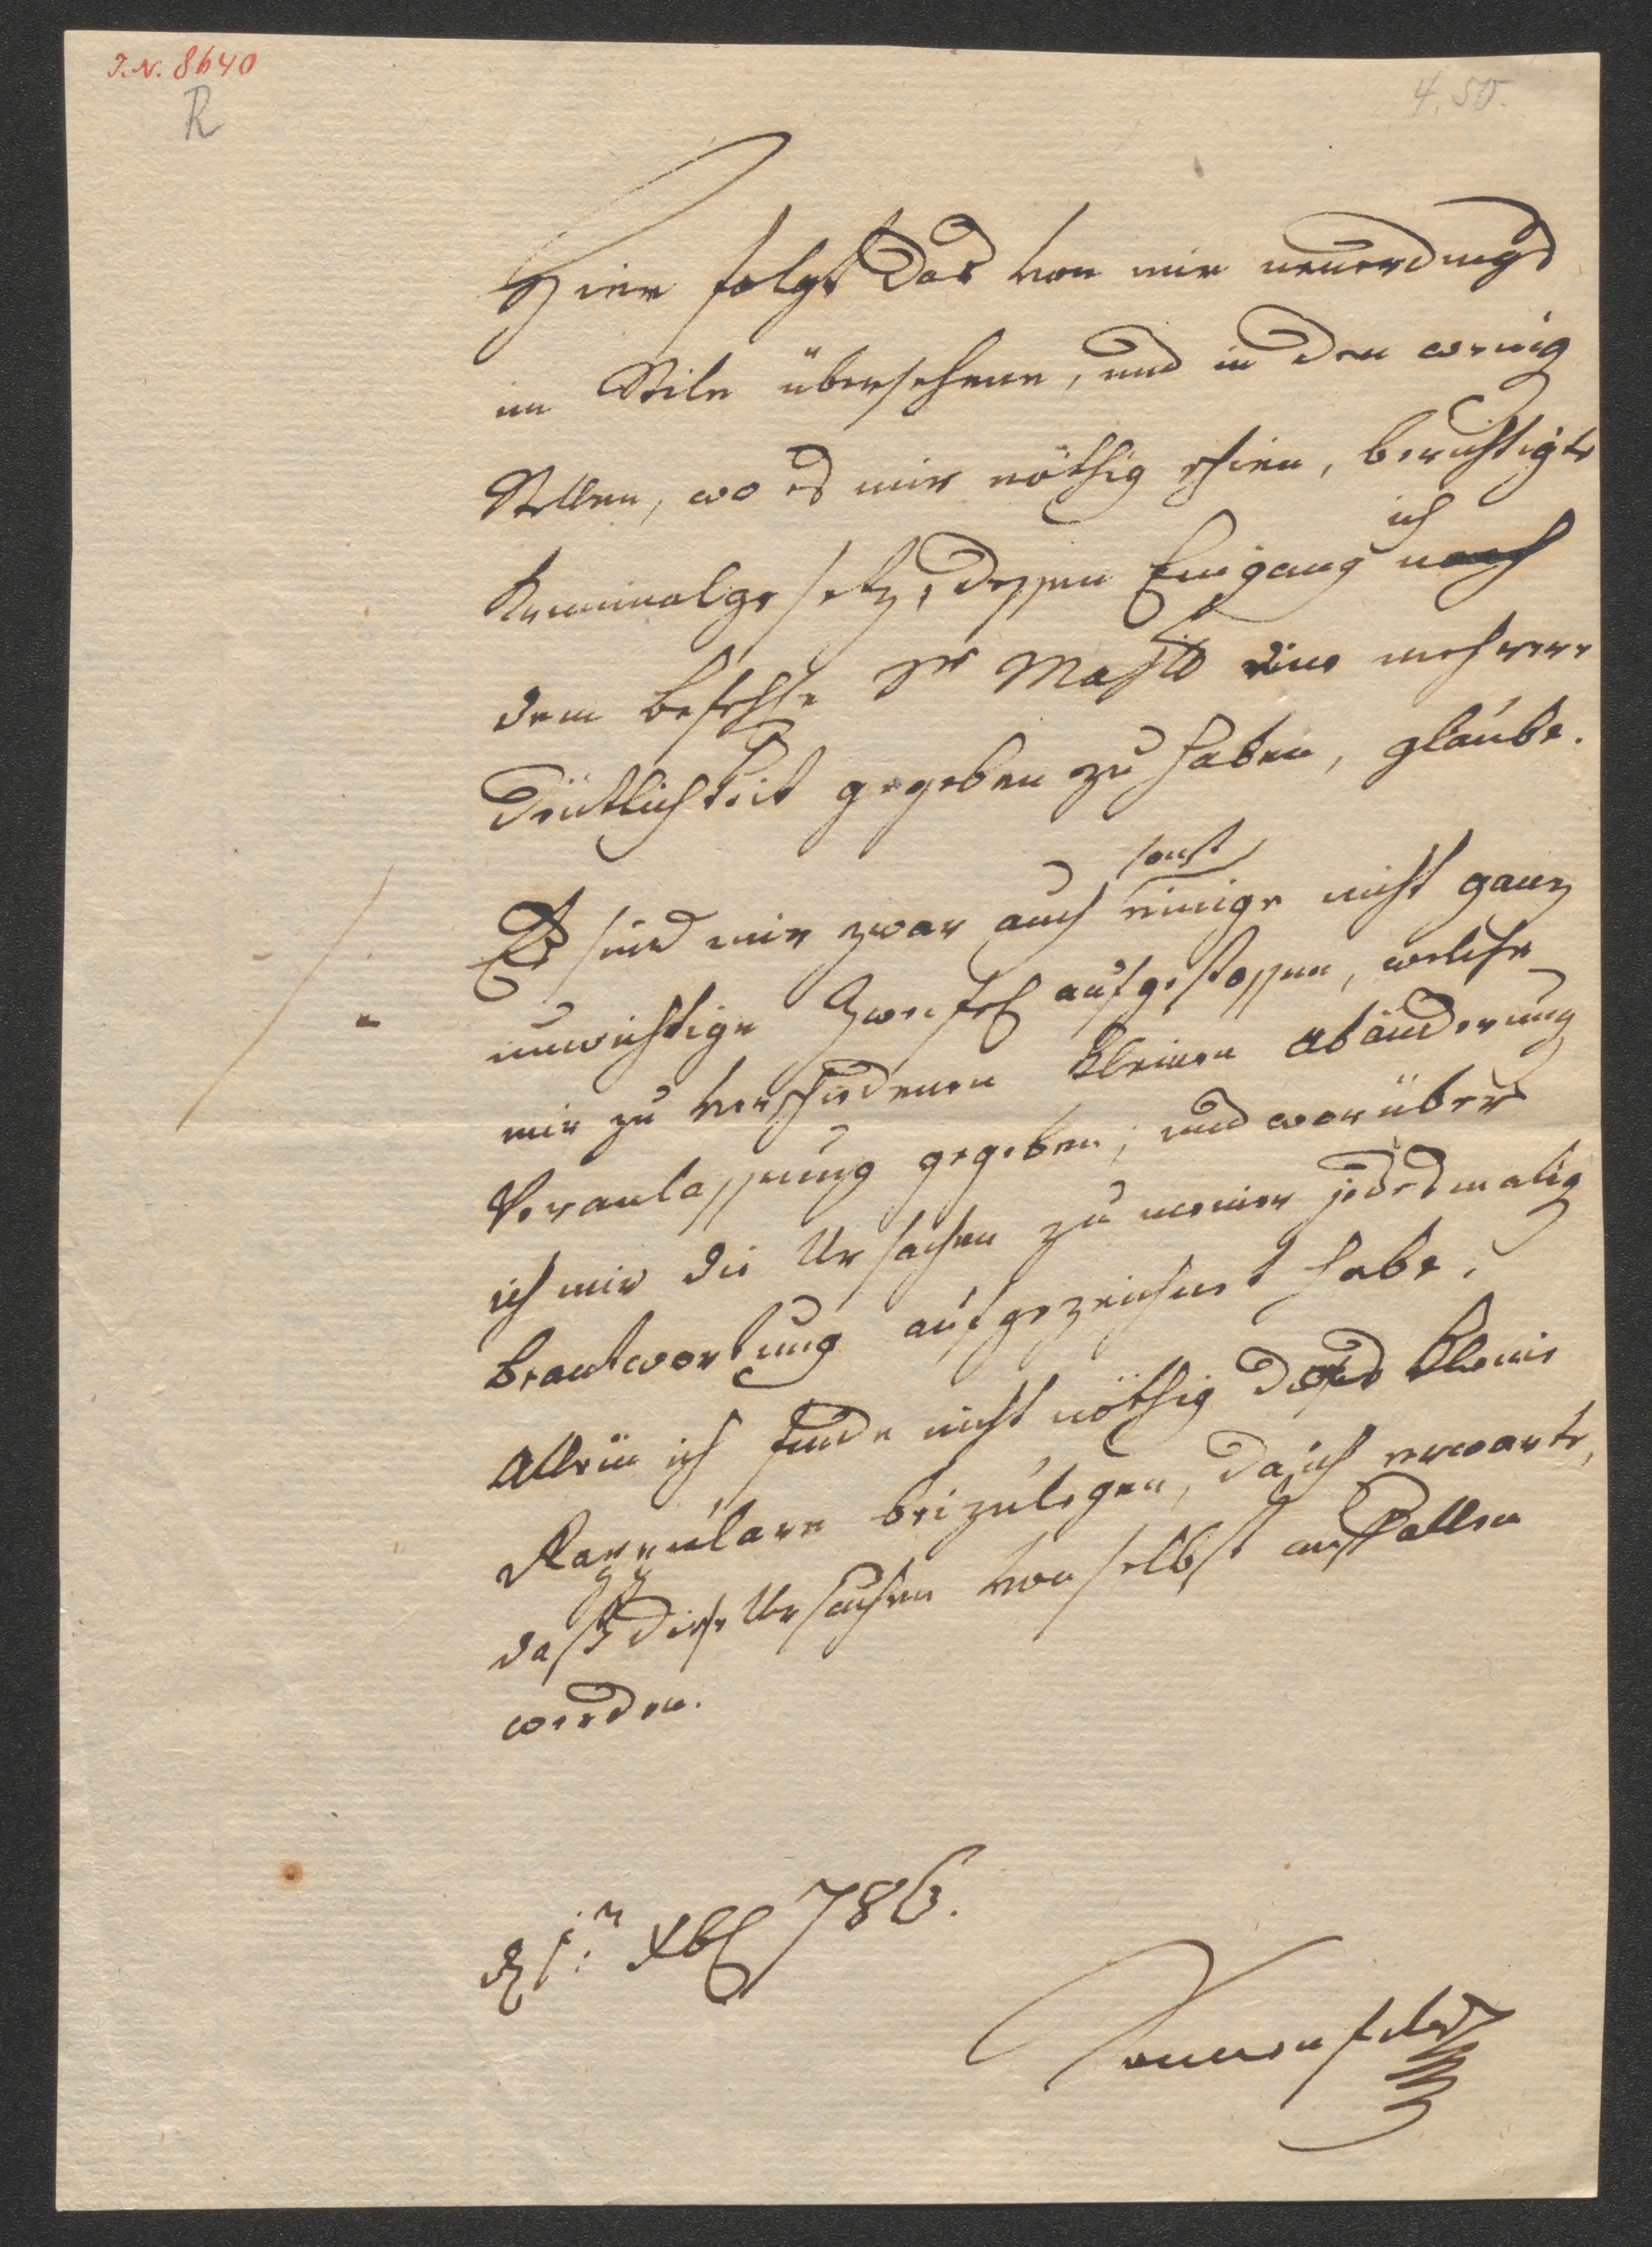 I.N. 8640
R
4.50.
Hier folgt das von mir neuerdings
im Stile übersehene, und in den wenig
Stellen, wo es mir nöthig schien, berichtigte
ich
Kriminalgesetz, dessen Eingang nach
dem Befehle Sr Majst eine mehrere
Deutlichkeit gegeben zu haben, glaube.
sonst
Es sind mir zwar auch einige nicht ganz
unwichtige Zweifel aufgestossen, welche
mir zu verschiedenen kleinen Abänderung
Veranlassung gegeben, und worüber
ich mir die Ursachen zu meiner jedesmalig
Beantwortung aufgezeichnet habe.
Allein ich finde nicht nöthig dieses kleine
beizulegen, da ich erwarte,
daß diese Ursachen von selbst auffallen
werden.
1: Xb 786.
Sonnenfels